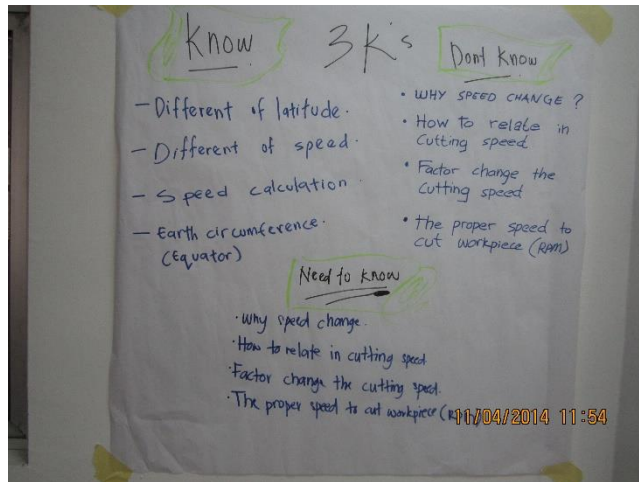 3 K's
Know
- Different of latitude.
- Different of speed.
- Speed calculation.
- Earth circumference.
(Equator)
Dont Know
• WHY SPEED CHANGE ?
• How to relate in
cutting speed
• Factor change the
cutting speed
• The proper speed to
cut workpiece (RPM)
Need to know
• Why speed change.
• How to relate in cutting speed
• Factor change the cutting speed.
• The proper speed to cut workpiece (RPM)
11/04/2014 11:54